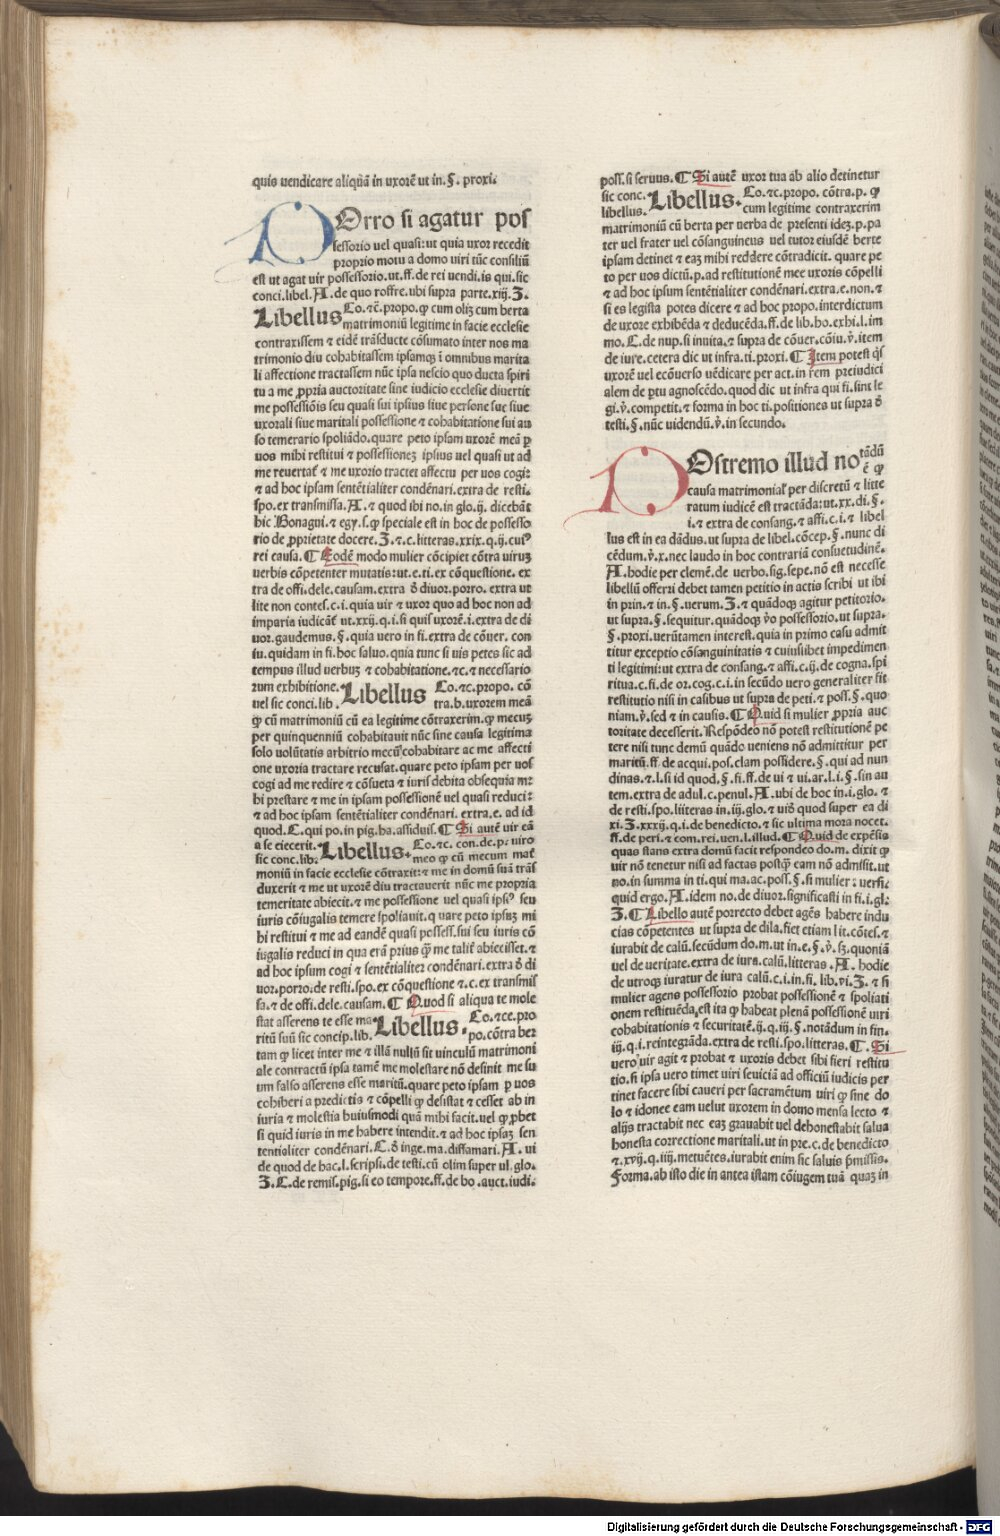 quis uendicare aliquā in uxorē ut in. §. proxi.
POrro si agatur pos
sessorio uel quasi: ut quia uxor recedit
proprio motu a domo uiri tūc consiliū
est ut agat uir possessorio. ut. ff. de rei uendi. is qui. sic
conci. libel. A. de quo roffre. ubi supra parte. xiij. Z.
Libellus Co. ⁊ē. propo. ꝙ cum oliꝫ cum berta
matrimoniū legitime in facie ecclesie
contraxissem ⁊ eidē trāsducte cōsumato inter nos ma
trimonio diu cohabitassem ipsamqꝫ ī omnibus marita
li affectione tractassem nūc ipsa nescio quo ducta spiri
tu a me ꝓpria auctoritate sine iudicio ecclesie diuertit
me possessiōis seu quasi sui ipsius siue persone sue siue
uxorali siue maritali possessione ⁊ cohabitatione sui au
so temerario spoliādo. quare peto ipsam uxorē meā ꝑ
uos mihi restitui ⁊ possessioneꝫ ipsius uel quasi ut ad
me reuertat᷑ ⁊ me uxorio tractet affectu per uos cogi:
⁊ ad hoc ipsam sentētialiter condēnari. extra de resti.
spo. ex transmissa. A. ⁊ quod ibi no. in glo. ij. dicebāt
hic Bonagui. ⁊ egy. s. ꝙ speciale est in hoc de possesso
rio de ꝓprietate docere. Z. ⁊. c. litteras. xxix. q. ij. cuiꝰ
rei causa. ¶ Eodē modo mulier cōcipiet cōtra uiruꝫ
uerbis cōpetenter mutatis: ut. e. ti. ex cōquestione. ex
tra de offi. dele. causam. extra d̄ diuor. porro. extra ut
lite non contes. c. i. quia uir ⁊ uxor quo ad hoc non ad
imparia iudicāt᷑ ut. xxij. q. i. si quis uxorē. i. extra de di
uor. gaudemus. §. quia uero in fi. extra de cōuer. con
iu. quidam in fi. hoc saluo. quia tunc si uis petes sic ad
tempus illud uerbuꝫ ⁊ cohabitatione. ⁊c. ⁊ necessario
rum exhibitione. Libellus Co. ⁊c. propo. cō
uel sic conci. lib. tra. b. uxorem meā
ꝙ cū matrimoniū cū ea legitime cōtraxerim. ꝙ mecuꝫ
per quinquenniū cohabitauit nūc sine causa legitima
solo uolūtatis arbitrio mecū cohabitare ac me affecti
one uxoria tractare recusat. quare peto ipsam per uos
cogi ad me redire ⁊ cōsueta ⁊ iuris debita obsequia mi
hi prestare ⁊ me in ipsam possessionē uel quasi reduci:
⁊ ad hoc ipsam sentētialiter condēnari. extra. e. ad id
quod. C. qui po. in pig. ha. assiduis. ¶ Si autē uir eā
a se eiecerit. Libellus. Co. ⁊c. con. de. p. uiro
sic conc. lib. meo ꝙ cū mecum mat᷑
moniū in facie ecclesie cōtraxit: ⁊ me in domū suā trās
duxerit ⁊ me ut uxorē diu tractauerit nūc me propria
temeritate abiecit. ⁊ me possessione uel quasi ipsiꝰ seu
iuris cōiugalis temere spoliauit. quare peto ipsuꝫ mi
hi restitui ⁊ me ad eandē quasi possess. sui seu iuris cō
iugalis reduci in qua erā prius qꝫ me talit᷑ abiecisset. ⁊
ad hoc ipsum cogi ⁊ sentētialiteꝛ condēnari. extra d̄ di
uor. porro. de resti. spo. ex cōquestione ⁊. c. ex transmis
sa. ⁊ de offi. dele. causam. ¶ Quod si aliqua te mole
stat asserens te esse ma Libellus. Co. ⁊ce. pro
ritū suū sic concip. lib. po. cōtra ber
tam ꝙ licet inter me ⁊ illā nullū sit uinculū matrimoni
ale contractū ipsa tamē me molestare nō desinit me su
um falso asserens esse maritū. quare peto ipsam ꝑ uos
cohiberi a predictis ⁊ cōpelli ꝙ desistat ⁊ cesset ab in
iuria ⁊ molestia huiusmodi quā mihi facit. uel ꝙ ꝓbet
si quid iuris in me habere intendit. ⁊ ad hoc ipsaꝫ sen
tentialiter condēnari. C. d̄ inge. ma. diffamari. A. ui
de quod de hac. l. scripsi. de testi. cū olim super ul. glo.
Z. C. de remis. pig. si eo tempore. ff. de bo. auct. iudi.
poss. si seruus. ¶ Si autē uxor tua ab alio detinetur
sic conc. Libellus. Co. ⁊c. propo. cōtra. p. ꝙ
libellus. cum legitime contraxerim
matrimoniū cū berta per uerba de presenti ideꝫ. p. pa
ter uel frater uel cōsanguineus uel tutor eiusdē berte
ipsam detinet ⁊ eaꝫ mihi reddere cōtradicit. quare pe
to per uos dictū. p. ad restitutionē mee uxoris cōpelli
⁊ ad hoc ipsum sentētialiter condēnari. extra. e. non. ⁊
si es legista potes dicere ⁊ ad hoc propo. interdictum
de uxore exhibēda ⁊ deducēda. ff. de lib. ho. exhi. l. im
mo. C. de nup. si inuita. ⁊ supra de cōuer. cōiu. v̄. item
de iure. cetera dic ut infra. ti. proxi. ¶ Item potest qͥs
uxorē uel ecōuerso uēdicare per act. in rem preiudici
alem de ꝑtu agnoscēdo. quod dic ut infra qui fi. sint le
gi. v̄. competit. ⁊ forma in hoc ti. positiones ut supra d̄
testi. §. nūc uidendū. v̄. in secundo.
POstremo illud notādū
ē ꝙ
causa matrimonial᷑ per discretū ⁊ litte
ratum iudicē est tractāda: ut. xx. di. §.
i. ⁊ extra de consang. ⁊ affi. c. i. ⁊ libel
lus est in ea dādus. ut supra de libel. cōcep. §. nunc di
cēdum. v̄. x. nec laudo in hoc contrariā consuetudinē.
A. hodie per clemē. de uerbo. sig. sepe. nō est necesse
libellū offerri debet tamen petitio in actis scribi ut ibi
in prin. ⁊ in §. uerum. Z. ⁊ quādoqꝫ agitur petitorio.
ut supra. §. sequitur. quādoqꝫ v̄o possessorio. ut supra.
§. proxi. uerūtamen interest. quia in primo casu admit
titur exceptio cōsanguinitatis ⁊ cuiuslibet impedimen
ti legitimi: ut extra de consang. ⁊ affi. c. ij. de cogna. spi
ritua. c. fi. de or. cog. c. i. in secūdo uero generaliter fit
restitutio nisi in casibus ut supra de peti. ⁊ poss. §. quo
niam. v̄. sed ⁊ in causis. ¶ Quid si mulier ꝓpria auc
toritate decesserit. Respōdeo nō potest restitutionē pe
tere nisi tunc demū quādo ueniens nō admittitur per
maritū. ff. de acqui. pos. clam possidere. §. qui ad nun
dinas. ⁊. l. si id quod. §. fi. ff. de ui ⁊ ui. ar. l. i. §. sin au
tem. extra de adul. c. penul. A. ubi de hoc in. i. glo. ⁊
de resti. spo. litteras in. iij. glo. ⁊ uiꝰ quod super ea di
xi. Z. xxxij. q. i. de benedicto. ⁊ sic ultima mora nocet.
ff. de peri. ⁊ com. rei. uen. l. illud. ¶ Quid de expēsis
quas stans extra domū facit respondeo do. m. dixit ꝙ
uir nō tenetur nisi ad factas postqꝫ eam nō admisit. ut
no. in summa in ti. qui ma. ac. poss. §. si mulier: uersi.
quid ergo. A. idem no. de diuor. significasti in fi. i. gl.
Z. ¶ Libello autē porrecto debet agēs habere indu
cias cōpetentes ut supra de dila. fiet etiam lit. cōtes. ⁊
iurabit de calū. secūdum do. m. ut in. e. §. v̄. sꝫ. quoniā
uel de ueritate. extra de iura. calū. litteras. A. hodie
de utroqꝫ iuratur de iura calū. c. i. in fi. lib. vi. Z. ⁊ si
mulier agens possessorio probat possessionē ⁊ spoliati
onem restituēda. est ita ꝙ habeat plenā possessionē uiri
cohabitationis ⁊ securitatē. ij. q. iij. §. notādum in fin.
iij. q. i. reintegrāda. extra de resti. spo. litteras. ¶. Si
uero uir agit ⁊ probat ⁊ uxoris debet sibi fieri restitu
tio. si ipsa uero timet uiri seuiciā ad officiū iudicis per
tinet facere sibi caueri per sacramētum uiri ꝙ sine do
lo ⁊ idonee eam uelut uxorem in domo mensa lecto ⁊
alijs tractabit nec eaꝫ grauabit uel dehonestabit salua
honesta correctione maritali. ut in pre. c. de benedicto
⁊. xvij. q. iiij. metuētes. iurabit enim sic saluis p̄missis.
Forma. ab isto die in antea istam cōiugem tuā quaꝫ in
Digitalisierung gefördert durch die Deutsche Forschungsgemeinschaft - DFG